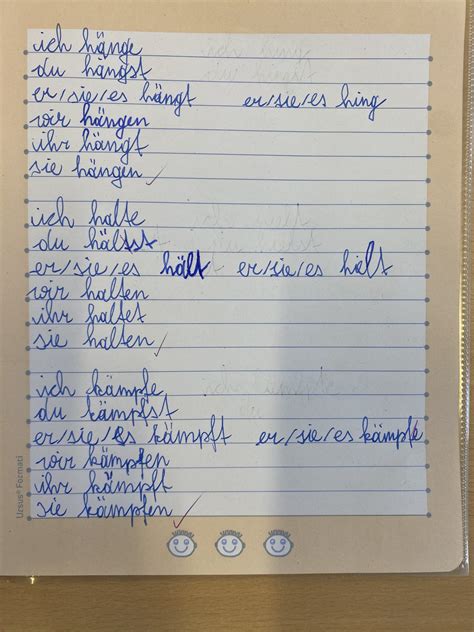 ich hänge
du hängst
er/sie/es hängt er/sie/es hing
wir hängen
ihr hängt
sie hängen
ich halte
du hältst
er/sie/es hält er/sie/es hält
wir halten
ihr haltet
sie halten
ich kämpfe
du kämpfst
er/sie/es kämpft er/sie/es kämpfe
wir kämpfen
ihr kämpft
sie kämpfen
Ursus® Formati